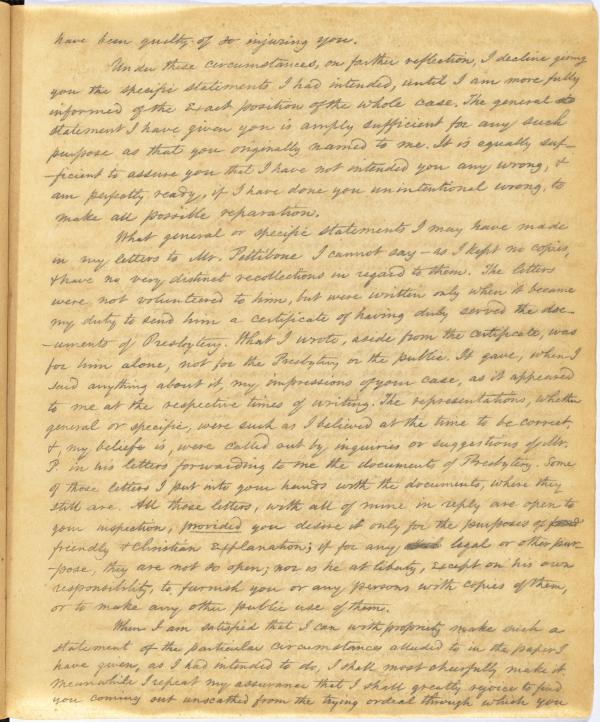 have been guilty of so injuring you.
Under these circumstances, on farther reflection, I decline giving
you the specific statements I had intended, until I am more fully
informed of the exact position of the whole case. The general
statement I have given you is amply sufficient for any such
purpose as that you originally named to me. It is equally suf-
-ficient to assure you that I have not intended you any wrong, &
am perfectly ready, if I have done you unintentional wrong, to
make all possible reparation.
What general or specific statements I may have made
in my letters to Mr. Pettibone I cannot say - as I kept no copies,
& have no very distinct recollections in regard to them. The letters
were not volunteered to him, but were written only when it became
my duty to send him a certificate of having duly served the doc-
-uments of Presbytery. What I wrote, aside from the certificate, was
for him alone, not for the Presbytery or the public. It gave, when I
said anything about it, my impressions of your case, as it appeared
to me at the respective times of writing. The representations, whether
general or specific, were such as I believed at the time to be correct,
&, my belief is, were called out by inquiries or suggestions of Mr.
P in his letters forwarding to me the documents of Presbytery. Some
of those letters I put into your hands with the documents, where they
still are. All those letters, with all of mine in reply are open to
your inspection, provided you desire it only for the purposes of
friendly & Christian explanation; if for any legal or other pur-
-pose, they are not so open; nor is he at liberty, except on his own
responsibility, to furnish you or any persons with copies of them,
or to make any other public use of them.
When I am satisfied that I can with propriety make such a
statement of the particular circumstances alluded to in the paper I
have given, as I had intended to do, I shall most cheerfully make it
Meanwhile I repeat my assurance that I shall greatly rejoice to find
you coming out unscathed from the trying ordeal through which you